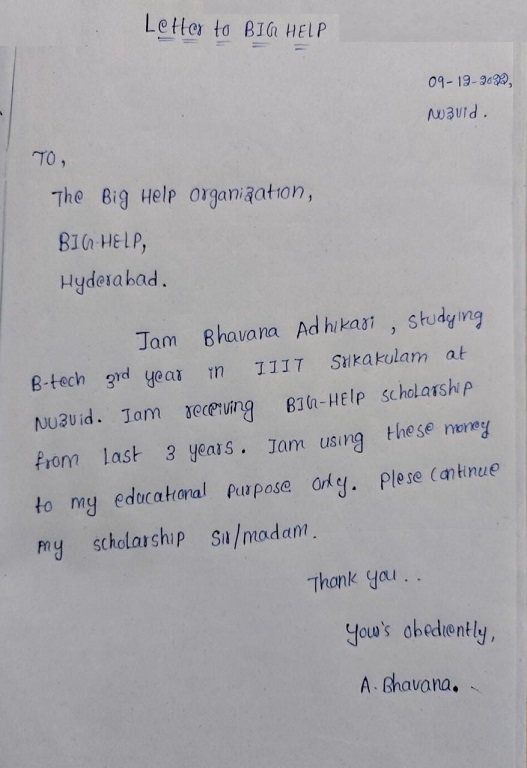 Letter to BIG HELP
09-12-2022,
Nuzvid.
To,
The Big Help organization,
BIG-HELP,
Hyderabad.
Iam Bhavana Adhikari, studying
B-tech 3rd year in IIIT Srikakulam at
Nuzvid. Iam receiving BIG-HELP scholarship
from last 3 years. Iam using these money
to my educational purpose only. Plese continue
my scholarship sir/madam.
Thank you..
Your's obediently,
A. Bhavana.